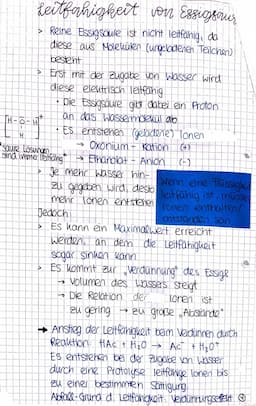 Leitfähigkeit von Essigsäure
> Reine Essigsäure ist nicht leitfähig, da
diese aus Molekülen (ungeladenen Teilchen)
besteht
> Erst mit der Zugabe von Wasser wird
diese elektrisch leitfähig
• Die Essigsäure gibt dabei ein Proton
an das Wassermolekül ab
• Es entstehen (geladene) Ionen
→ Oxonium-Kation (+)
→ Ethanolat-Anion (-)
[H-O-H]+
H
*saure Lösungen
sind immer leitfähig*
> Je mehr Wasser hin-
zu gegeben wird, desto
mehr Ionen entstehen
Wenn eine Flüssigkeit
leitfähig ist, müssen
Ionen enthalten/
entstanden sein
Jedoch:
> Es kann ein Maximalwert erreicht
werden, an dem die Leitfähigkeit
sogar sinken kann
> Es kommt zur „Verdünnung" des Essigs
→ Volumen des Wassers steigt
→ Die Relation der Ionen ist
zu gering → zu große „Abstände"
→ Anstieg der Leitfähigkeit beim Verdünnen durch
Reaktion: HAc + H₂O → Ac⁻ + H₃O⁺
Es entstehen bei der Zugabe von Wasser
durch eine Protolyse leitfähige Ionen bis
zu einer bestimmten Sättigung.
Abfall-Grund d. Leitfähigkeit: Verdünnungseffekt